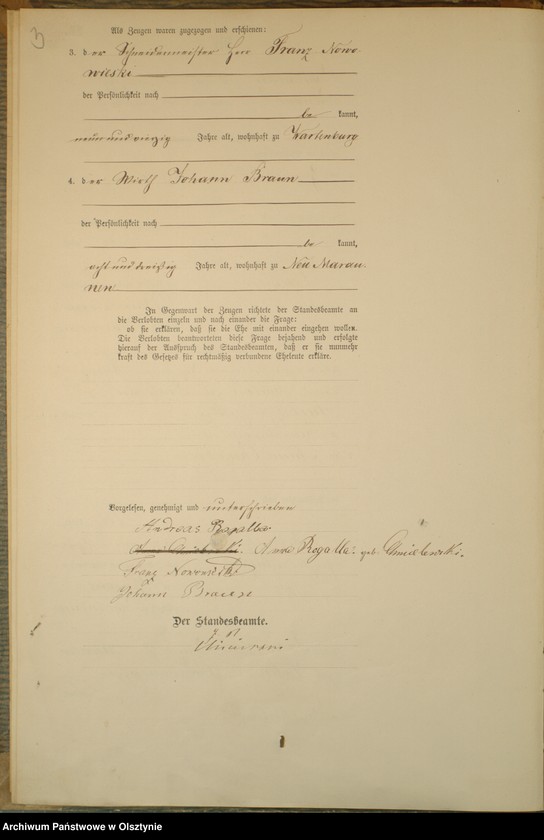 3
Als Zeugen waren zugezogen und erschienen:
3. der Schneidermeister Herr Franz Nowo-
wieski
der Persönlichkeit nach
be kannt,
neun und vierzig Jahre alt, wohnhaft zu Wartenburg
4. der Wirth Johann Braun
der Persönlichkeit nach
be kannt,
acht und dreißig Jahre alt, wohnhaft zu Neu Maraun-
nen
In Gegenwart der Zeugen richtete der Standesbeamte an
die Verlobten einzeln und nach einander die Frage:
ob sie erklären, daß sie die Ehe mit einander eingehen wollen.
Die Verlobten beantworteten diese Frage bejahend und erfolgte
hierauf der Ausspruch des Standesbeamten, daß er sie nunmehr
kraft des Gesetzes für rechtmäßig verbundene Eheleute erkläre.
Vorgelesen, genehmigt und unterschrieben
Andreas Rogalla
Anna Rogalla geb. Chmielewski.
Franz Nowowieski
Johann Braun
Der Standesbeamte.
Archiwum Państwowe w Olsztynie